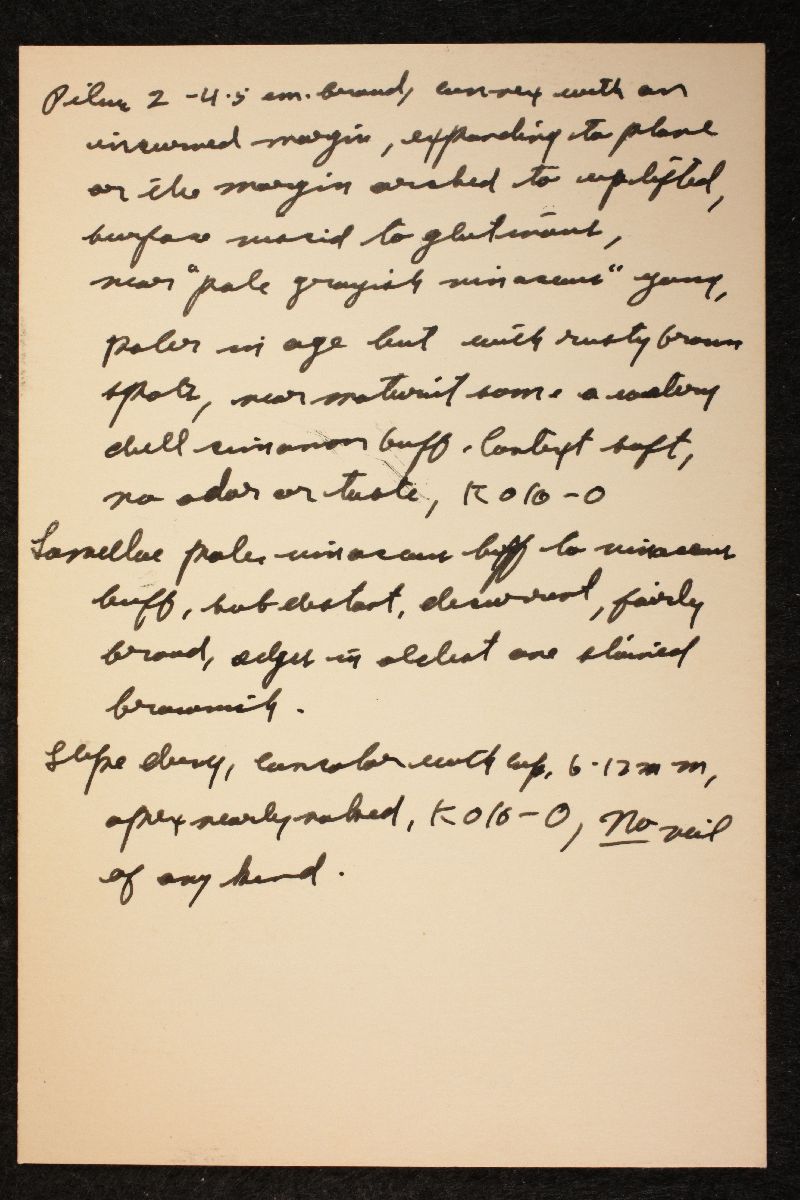 Pileus 2 -4.5 cm. broad, convex with an
incurved margin, expanding to plane
or the margin arched to uplifted,
surface viscid to glutinous,
near "pale grayish vinaceous" young,
paler in age but with rusty brown
spots, near maturit some a watery
dull cinnamon buff. Context soft,
no odor or taste, KOH - O
Lamellae pale vinaceous buff to vinaceous
buff, subdistant, decurrent, fairly
broad, edges in oldest one stained
brownish.
Stipe concolor with cap, 6-12 mm,
apex nearly naked, KOH - O, No veil
of any kind.